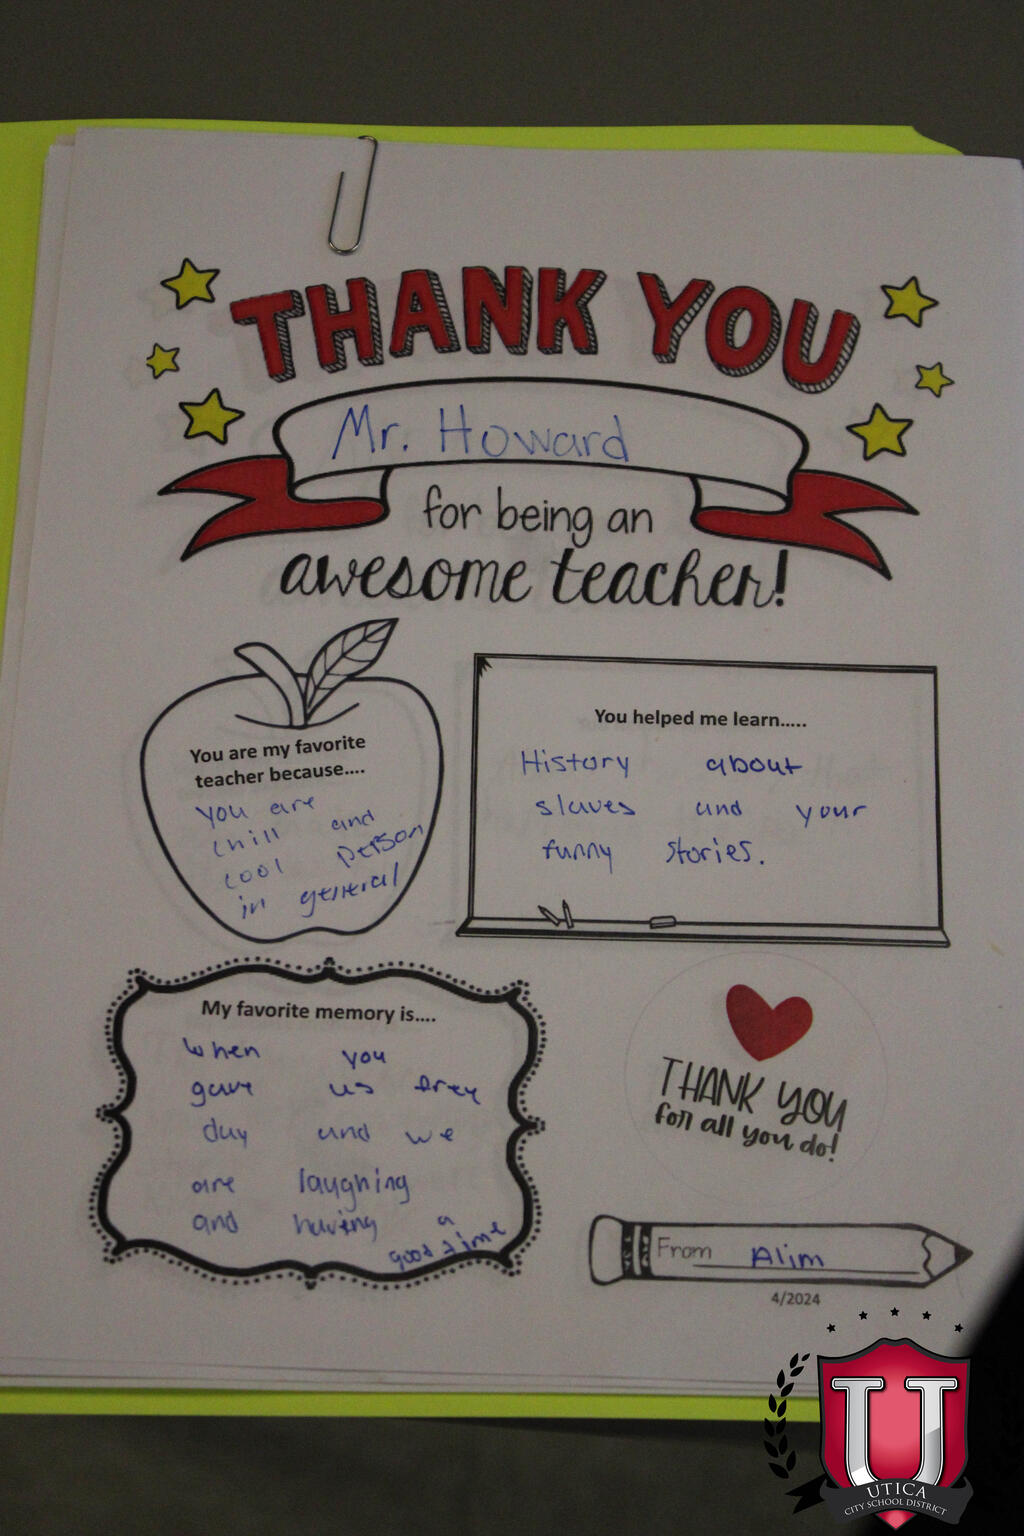 THANK YOU
Mr. Howard
for being an
awesome teacher!
You are my favorite
teacher because....
you are
chill and
cool person
in general
You helped me learn.....
History about
slaves and your
funny stories.
My favorite memory is....
when you
gave us frey
day and we
are laughing
and having a
good time
THANK YOU
for all you do!
From Alim
4/2024
U
UTICA
CITY SCHOOL DISTRICT